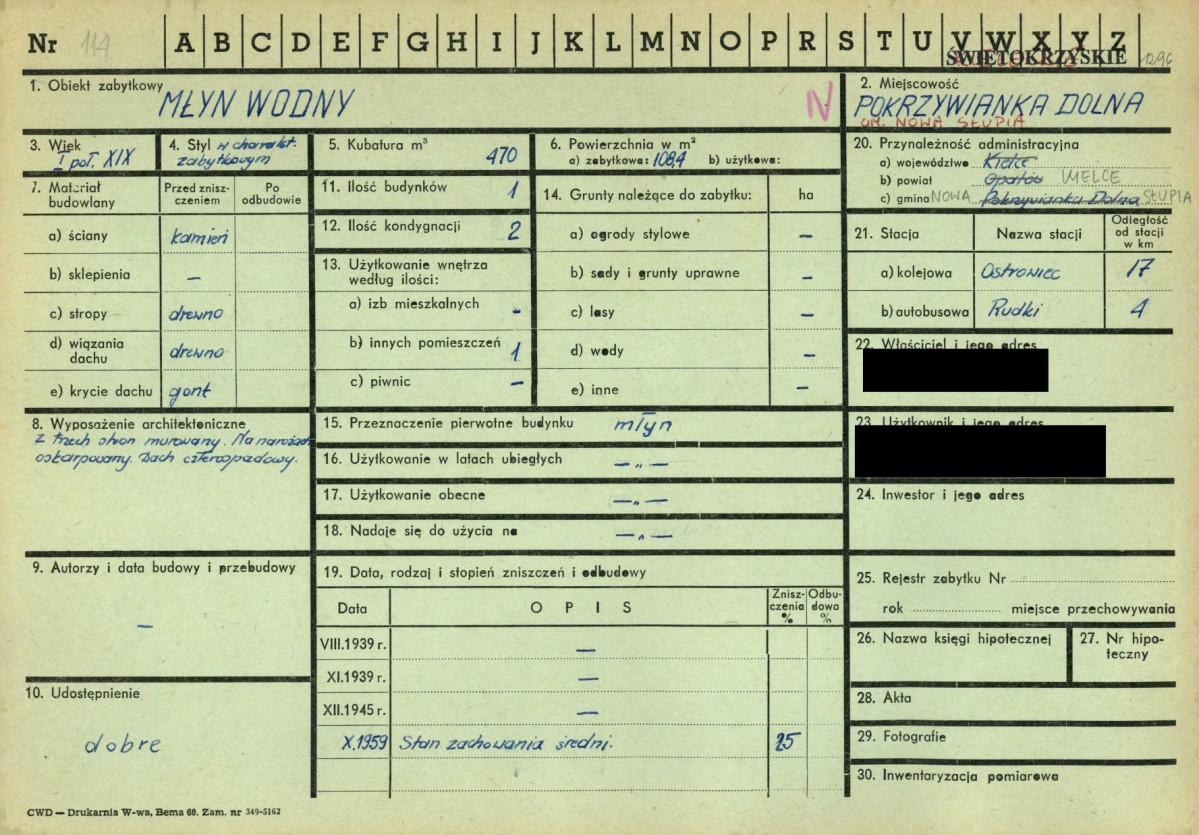 Nr 114 A B C D E F G H I J K L M N O P R S T U V W X Y Z
ŚWIĘTOKRZYSKIE 1296
1. Obiekt zabytkowy
MŁYN WODNY N
2. Miejscowość
POKRZYWIANKA DOLNA
GM. NOWA SŁUPIA
3. Wiek
I poł. XIX
4. Styl w charakt.
zabytkowym
5. Kubatura m³
470
6. Powierzchnia w m²
a) zabytkowa: 108,4 b) użytkowa:
20. Przynależność administracyjna
a) województwo Kielce
b) powiat Opatów KIELCE
c) gmina NOWA Pokrzywianka Dolna SŁUPIA
7. Materiał budowlany
Przed znisz-
czeniem
Po
odbudowie
a) ściany kamień
b) sklepienia —
c) stropy drewno
d) wiązania
dachu drewno
e) krycie dachu gont
11. Ilość budynków 1
12. Ilość kondygnacji 2
13. Użytkowanie wnętrza
według ilości:
a) izb mieszkalnych -
b) innych pomieszczeń 1
c) piwnic —
14. Grunty należące do zabytku: ha
a) ogrody stylowe —
b) sady i grunty uprawne —
c) lasy —
d) wody —
e) inne —
21. Stacja Nazwa stacji
Odległość
od stacji
w km
a) kolejowa Ostrowiec 17
b) autobusowa Rudki 4
22. Właściciel i jego adres
23. Użytkownik i jego adres
24. Inwestor i jego adres
8. Wyposażenie architektoniczne
Z trzech stron murowany. Na narożach
oskarpowany. Dach czterospadowy.
15. Przeznaczenie pierwotne budynku młyn
16. Użytkowanie w latach ubiegłych —„—
17. Użytkowanie obecne —„—
18. Nadaje się do użycia na —„—
9. Autorzy i data budowy i przebudowy
—
10. Udostępnienie
dobre
19. Data, rodzaj i stopień zniszczeń i odbudowy
Data OPIS
Znisz-
czenia
%
Odbu-
dowa
%
VIII.1939 r. —
XI.1939 r. —
XII.1945 r. —
X.1959 Stan zachowania średni. 25
25. Rejestr zabytku Nr
rok miejsce przechowywania
26. Nazwa księgi hipotecznej
27. Nr hipo-
teczny
28. Akta
29. Fotografie
30. Inwentaryzacja pomiarowa
CWD — Drukarnia W-wa, Bema 60. Zam. nr 349-5162